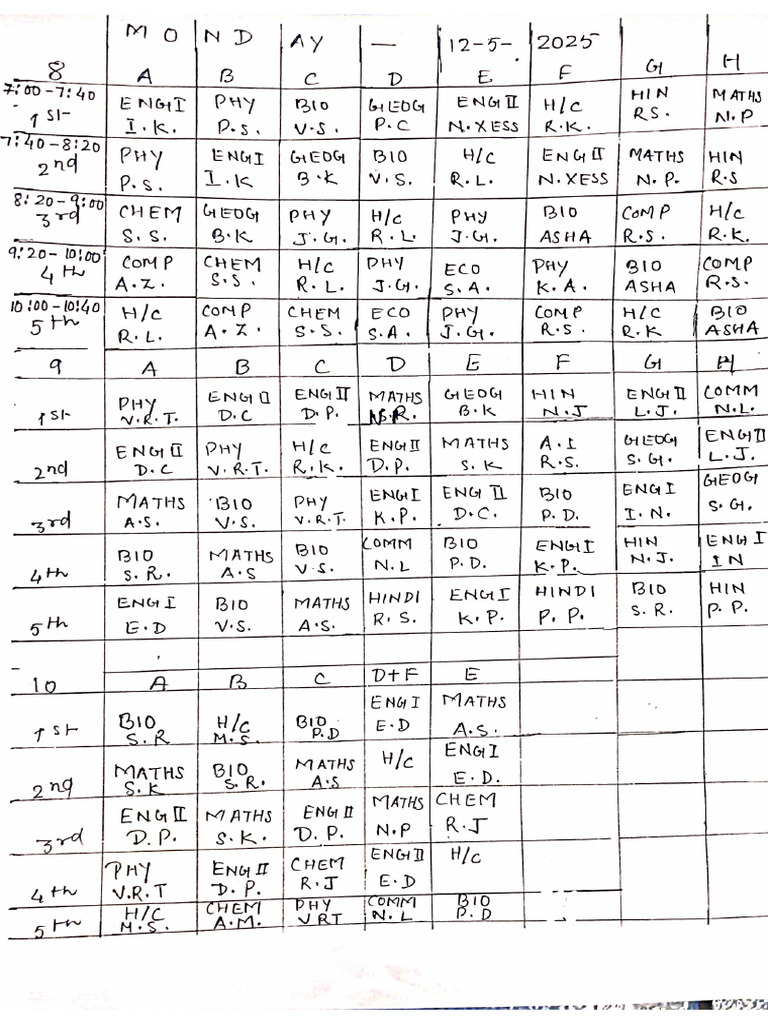 MONDAY — 12-5-2025
8 A B C D E F G H
7:00-7:40 1st ENG I I.K. PHY P.S. BIO V.S. GEOG P.C ENG II N.XESS H/C R.K. HIN RS. MATHS N.P
7:40-8:20 2nd PHY P.S. ENG I I.K GEOG B.K BIO V.S. H/C R.L. ENG II N.XESS MATHS N.P. HIN R.S
8:20-9:00 3rd CHEM S.S. GEOG B.K PHY J.G. H/C R.L PHY J.G. BIO ASHA COMP R.S. H/C R.K.
9:20-10:00 4th COMP A.Z. CHEM S.S. H/C R.L. PHY J.G. ECO S.A. PHY K.A. BIO ASHA COMP R.S.
10:00-10:40 5th H/C R.L. COMP A.Z. CHEM S.S. ECO S.A. PHY J.G. COMP R.S. H/C R.K BIO ASHA
9 A B C D E F G H
1st PHY V.R.T. ENG II D.C ENG II D.P. MATHS GEOG B.K HIN N.J ENG II L.J. COMM N.L.
2nd ENG II D.C PHY V.R.T. H/C R.K. ENG II D.P. MATHS S.K A.I R.S. GEOG S.G. ENG II L.J.
3rd MATHS A.S. BIO V.S. PHY V.R.T. ENG I K.P. ENG II D.C. BIO P.D. ENG I I.N. GEOG S.G.
4th BIO S.R. MATHS A.S BIO V.S. COMM N.L BIO P.D. ENG I K.P. HIN N.J. ENG I IN
5th ENG I E.D BIO V.S. MATHS A.S. HINDI R.S. ENG I K.P. HINDI P.P. BIO S.R. HIN P.P.
10 A B C D+F E
1st BIO S.R H/C M.S. BIO P.D ENG I E.D MATHS A.S.
2nd MATHS S.K BIO S.R. MATHS A.S H/C ENG I E.D.
3rd ENG II D.P. MATHS S.K. ENG II D.P. MATHS N.P CHEM R.J
4th PHY V.R.T ENG II D.P. CHEM R.J ENG II E.D H/C
5th H/C M.S. CHEM A.M. PHY VRT COMM N.L BIO P.D